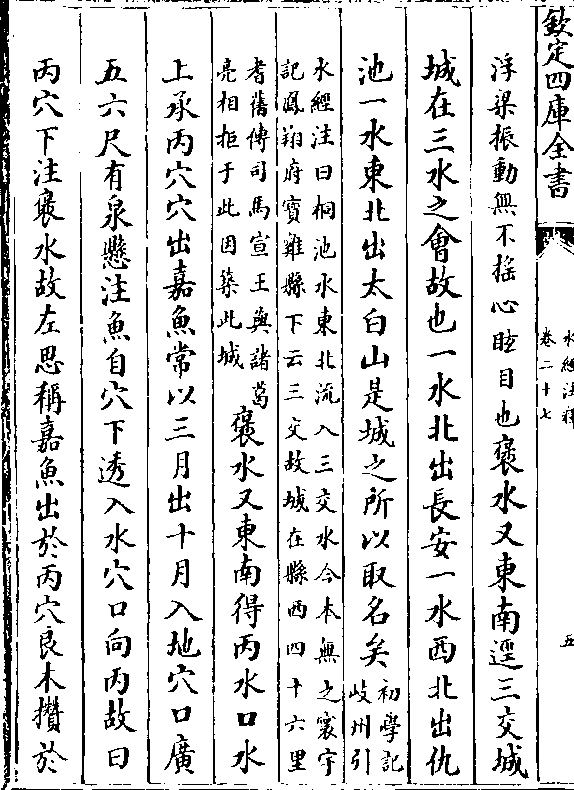 欽定四庫全書
水經注釋
卷二十七
五
浮梁振動無不揺心眩目也褒水又東南逕三交城
城在三水之㑹故也一水北出長安一水西北出仇
池一水東北出太白山是城之所以取名矣
初學記
岐州引
水經注曰桐池水東北流入三交水今本無之寰宇
記鳳翔府寶雞縣下云三交故城在縣西四十六里
者舊傳司馬宣王與諸葛
亮相拒于此因築此城
褒水又東南得丙水口水
上承丙穴穴出嘉魚常以三月出十月入地穴口廣
五六尺有泉懸注魚自穴下透入水穴口向丙故曰
丙穴下注褒水故左思稱嘉魚出於丙穴良木攢於